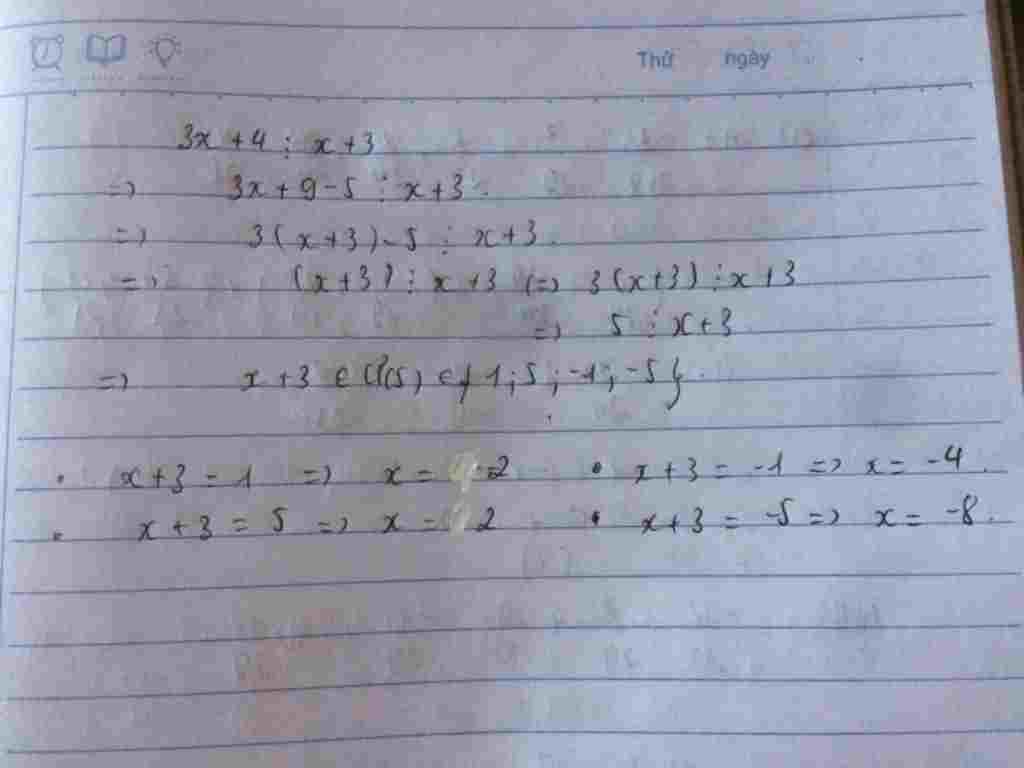 Thứ ngày
3x + 4 ⋮ x + 3
=> 3x + 9 - 5 ⋮ x + 3
=> 3(x + 3) - 5 ⋮ x + 3.
=> (x + 3) ⋮ x + 3 (=> 3(x + 3) ⋮ x + 3
=> 5 ⋮ x + 3
=> x + 3 ∈ Ư(5) ∈ {1; 5; -1; -5}.
• x + 3 = 1 => x = -2 • x + 3 = -1 => x = -4.
• x + 3 = 5 => x = 2 • x + 3 = -5 => x = -8.